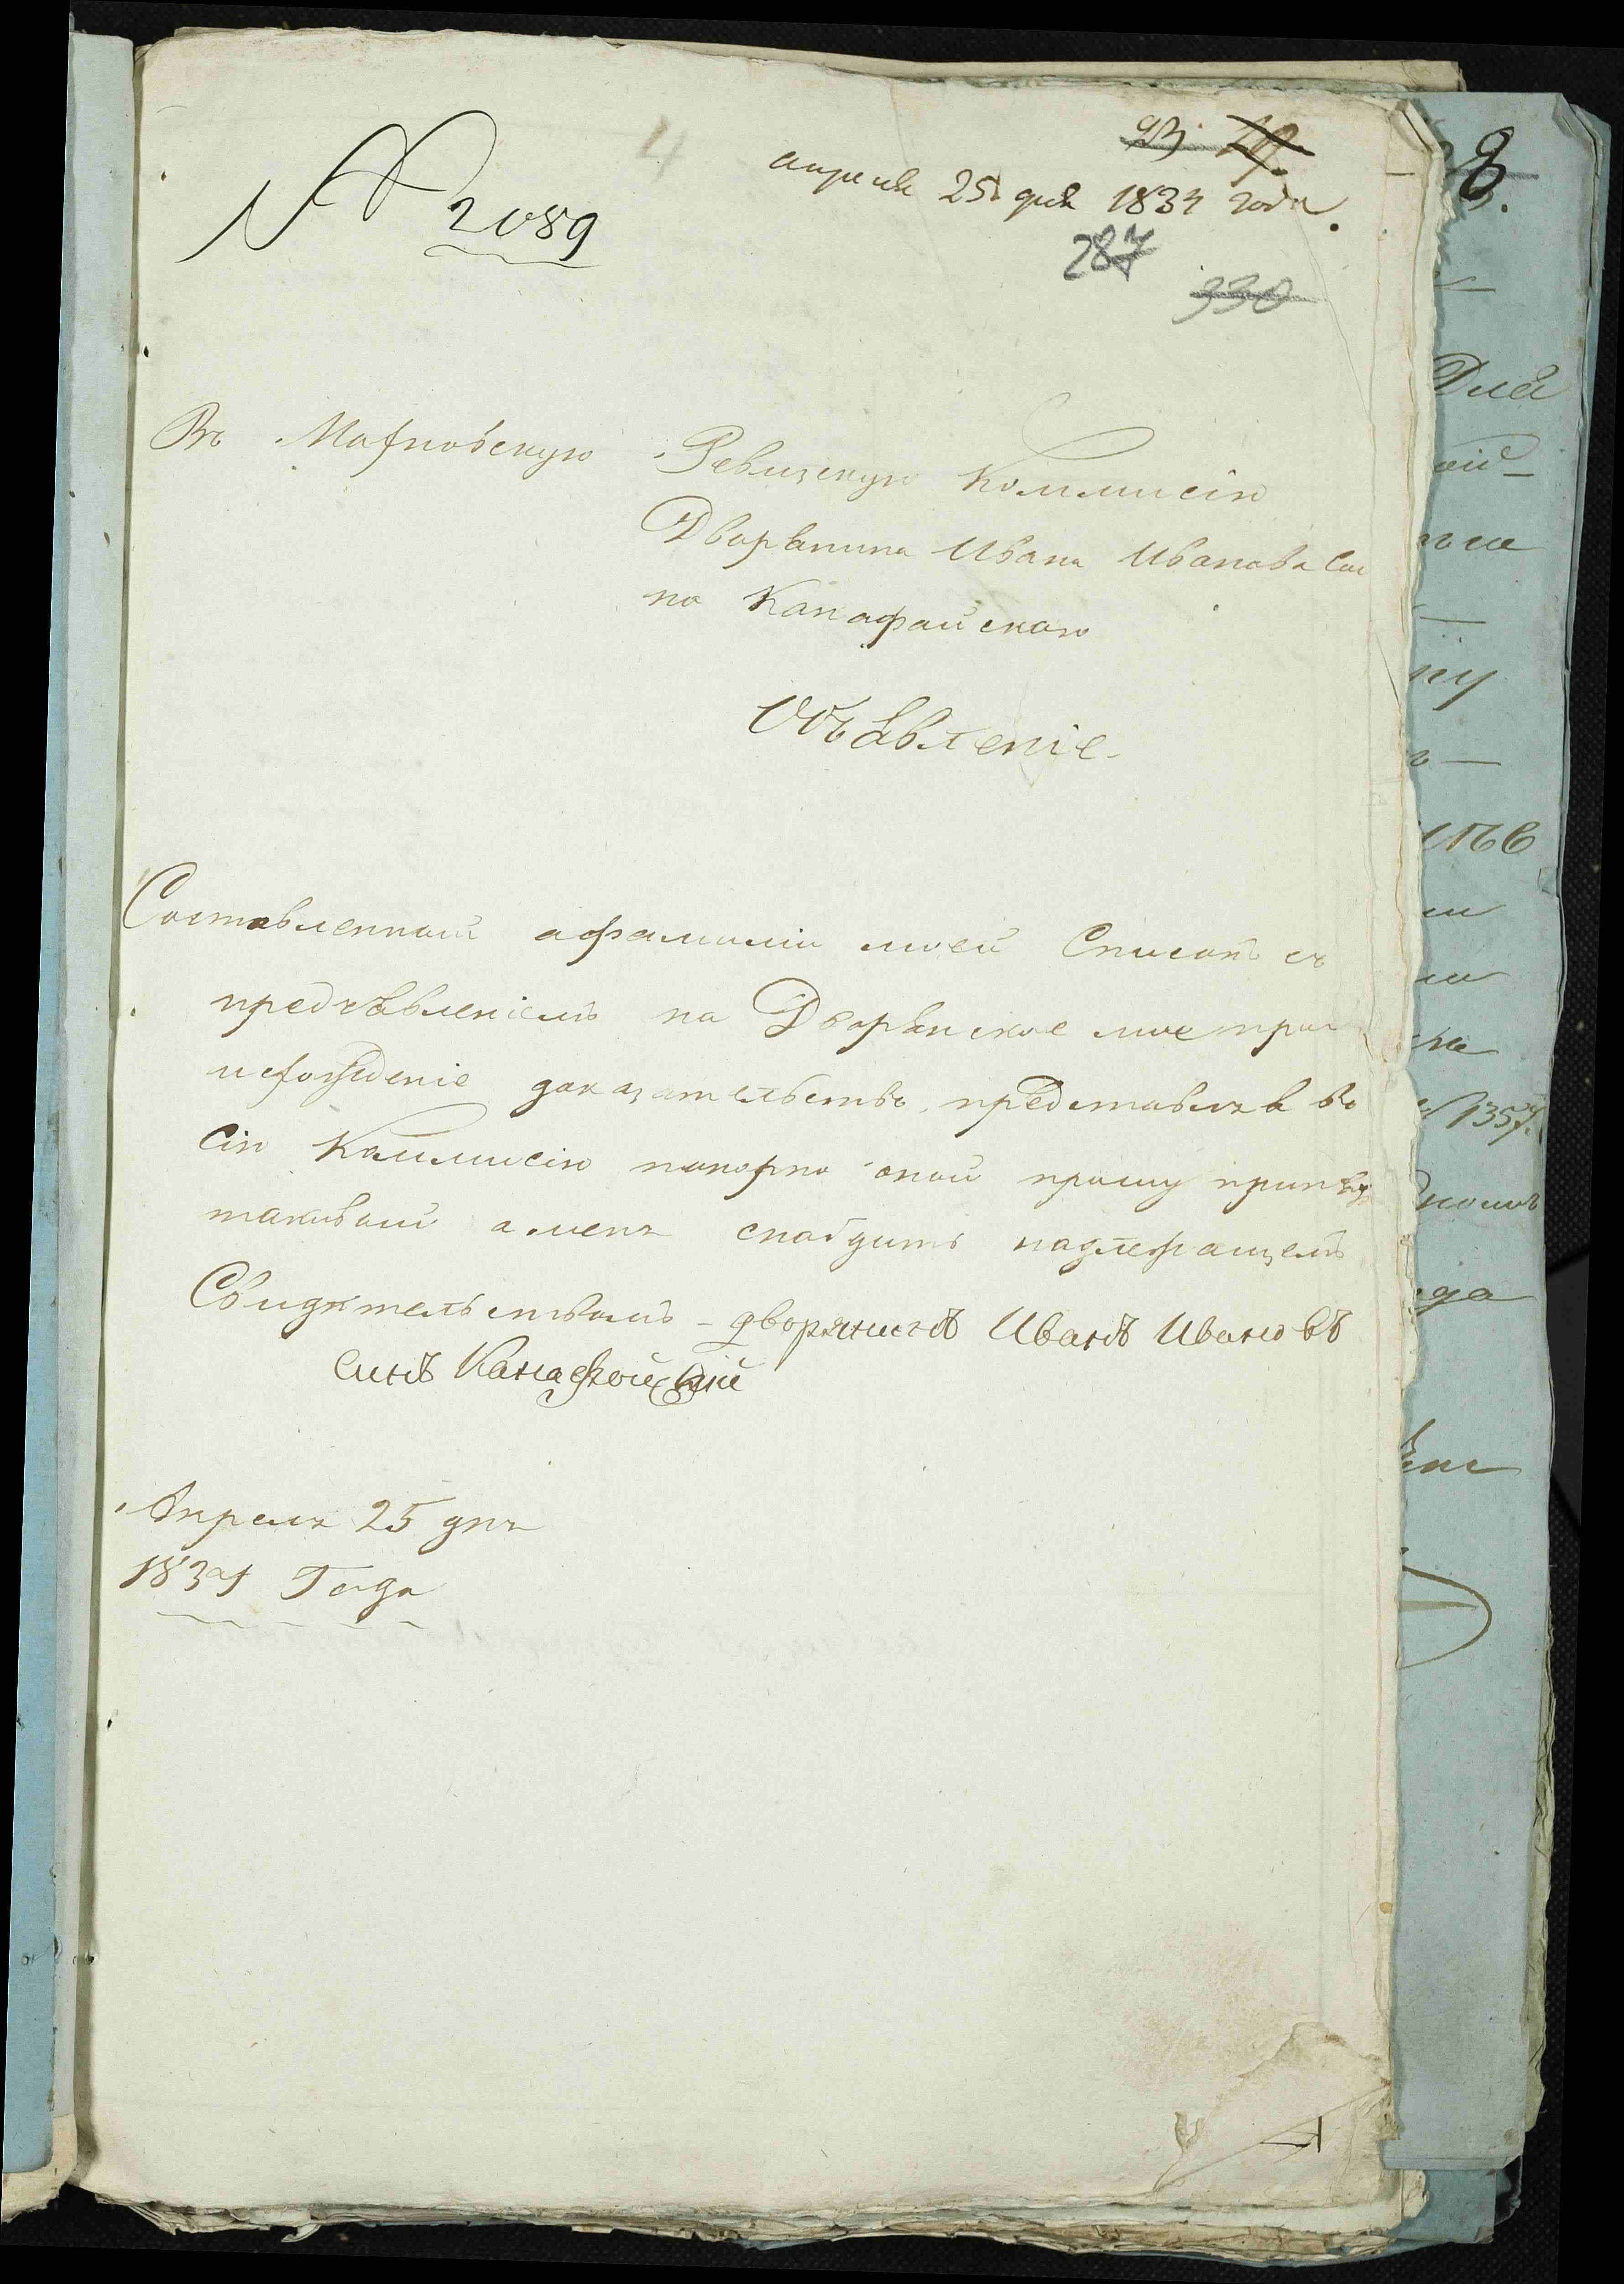 № 2089
4
апреля 25 дня 1834 года.
287
330
8.
Въ Махновскую Ревизскую Коммисію
Дворянина Ивана Иванова Сы
на Канафойскаго
Объявленіе.
Составленный афамиліи моей Списокъ съ
предъявленіемъ на Дворянское мое про
исхожденіе доказательствъ, представляя въ
Сію Коммисію покорно оной прошу принять
таковый а меня снабдить надлежащемъ
Свидетельствомъ - дворянинъ Иванъ Ивановъ
синъ Канафойский
Апреля 25 дня
1834 Года